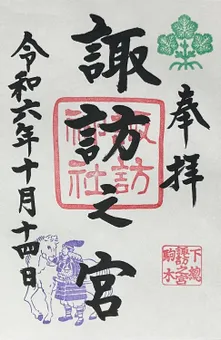 奉拝
諏訪之宮
諏訪
神社
下総
諏訪之宮
駒木
令和六年十月十四日